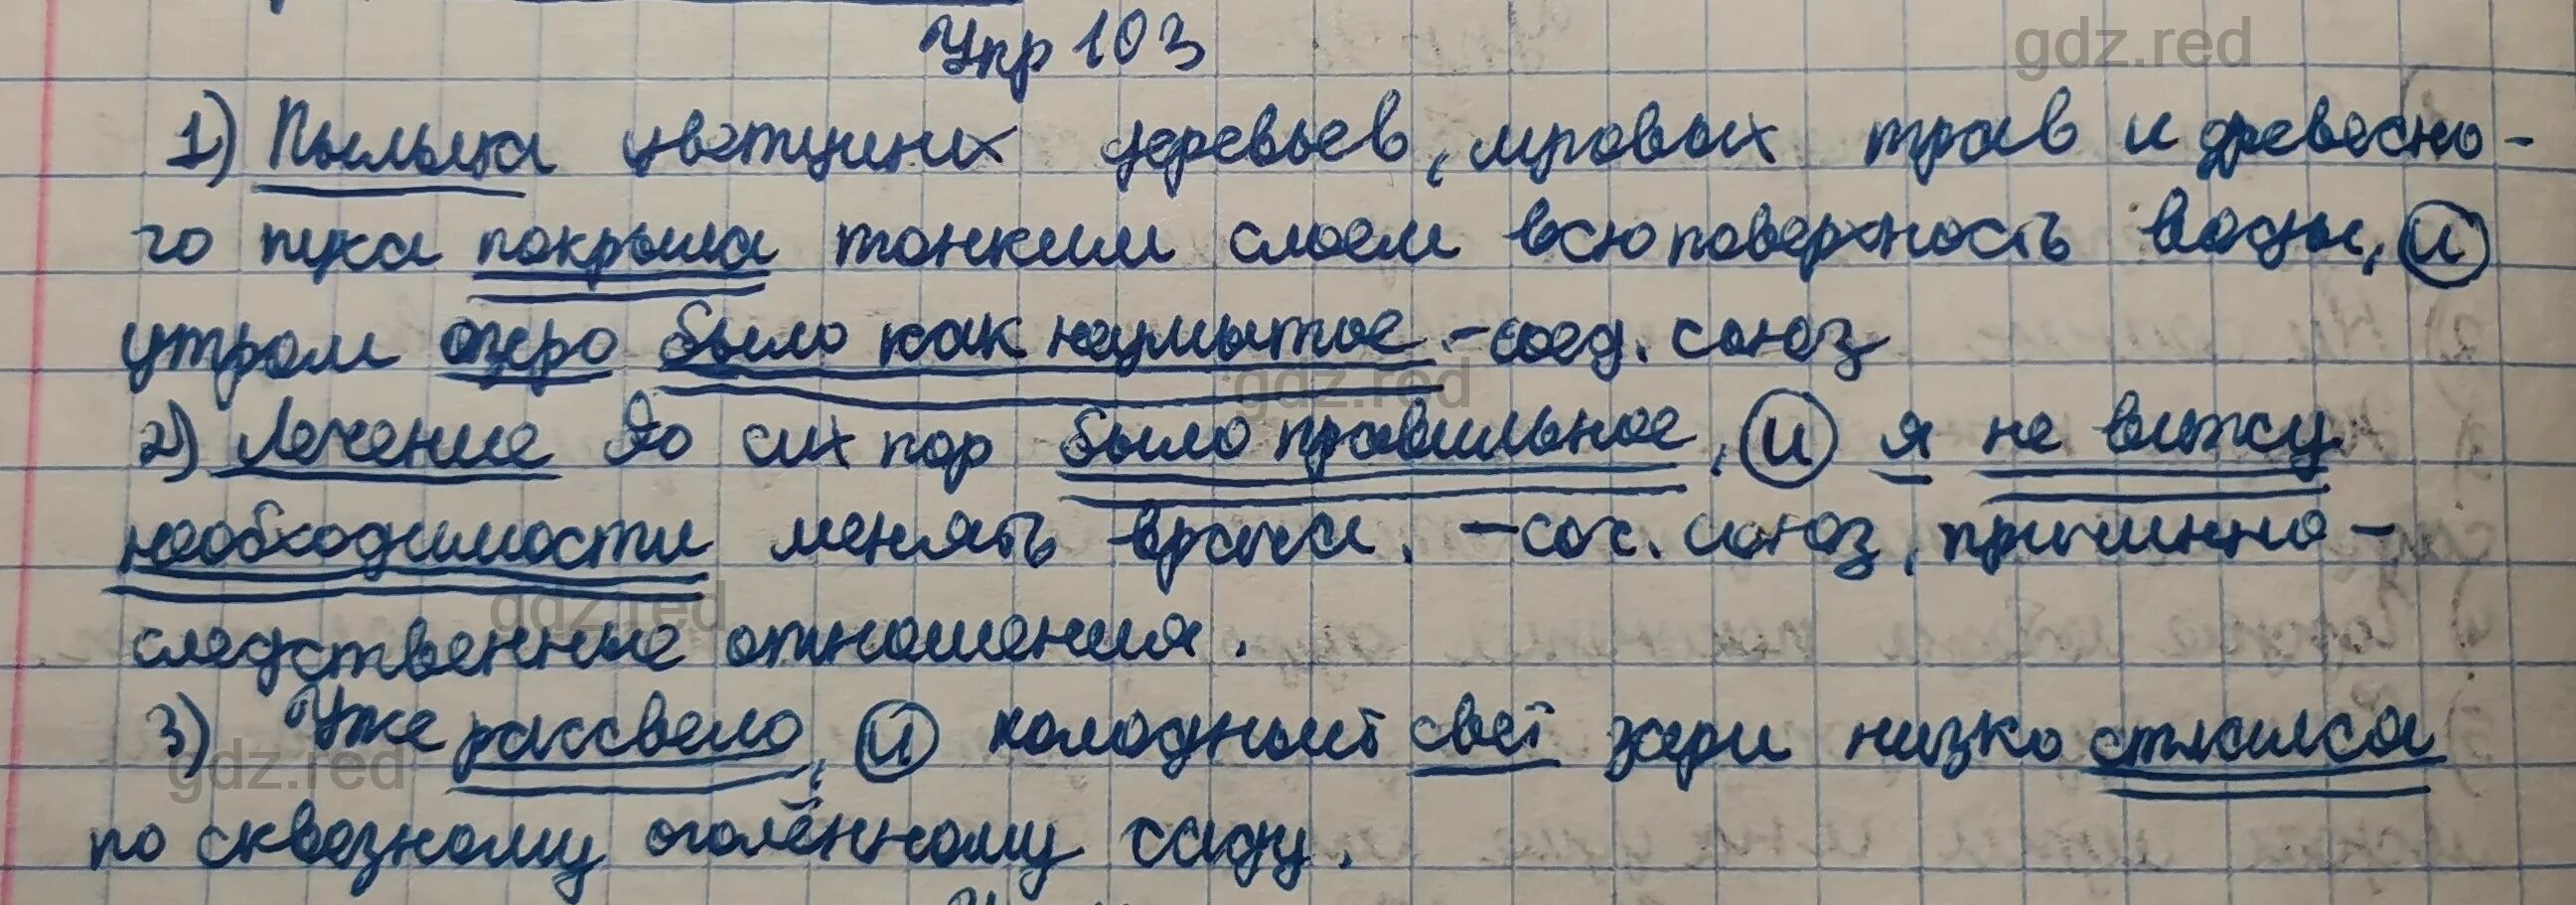 Упр 103
gdz.red
1) Пыльца цветущих деревьев, луговых трав и древесно-
го пуха покрыла тонким слоем всю поверхность воды, и
утром озеро было как неумытое - соед. союз
gdz.red
2) Лечение до сих пор было правильное, и я не вижу
необходимости менять врача. - соч. союз, причинно-
gdz.red
следственные отношения.
3) Уже рассвело, и холодный свет зари низко стлился
gdz.red
по сквозному оголённому саду.